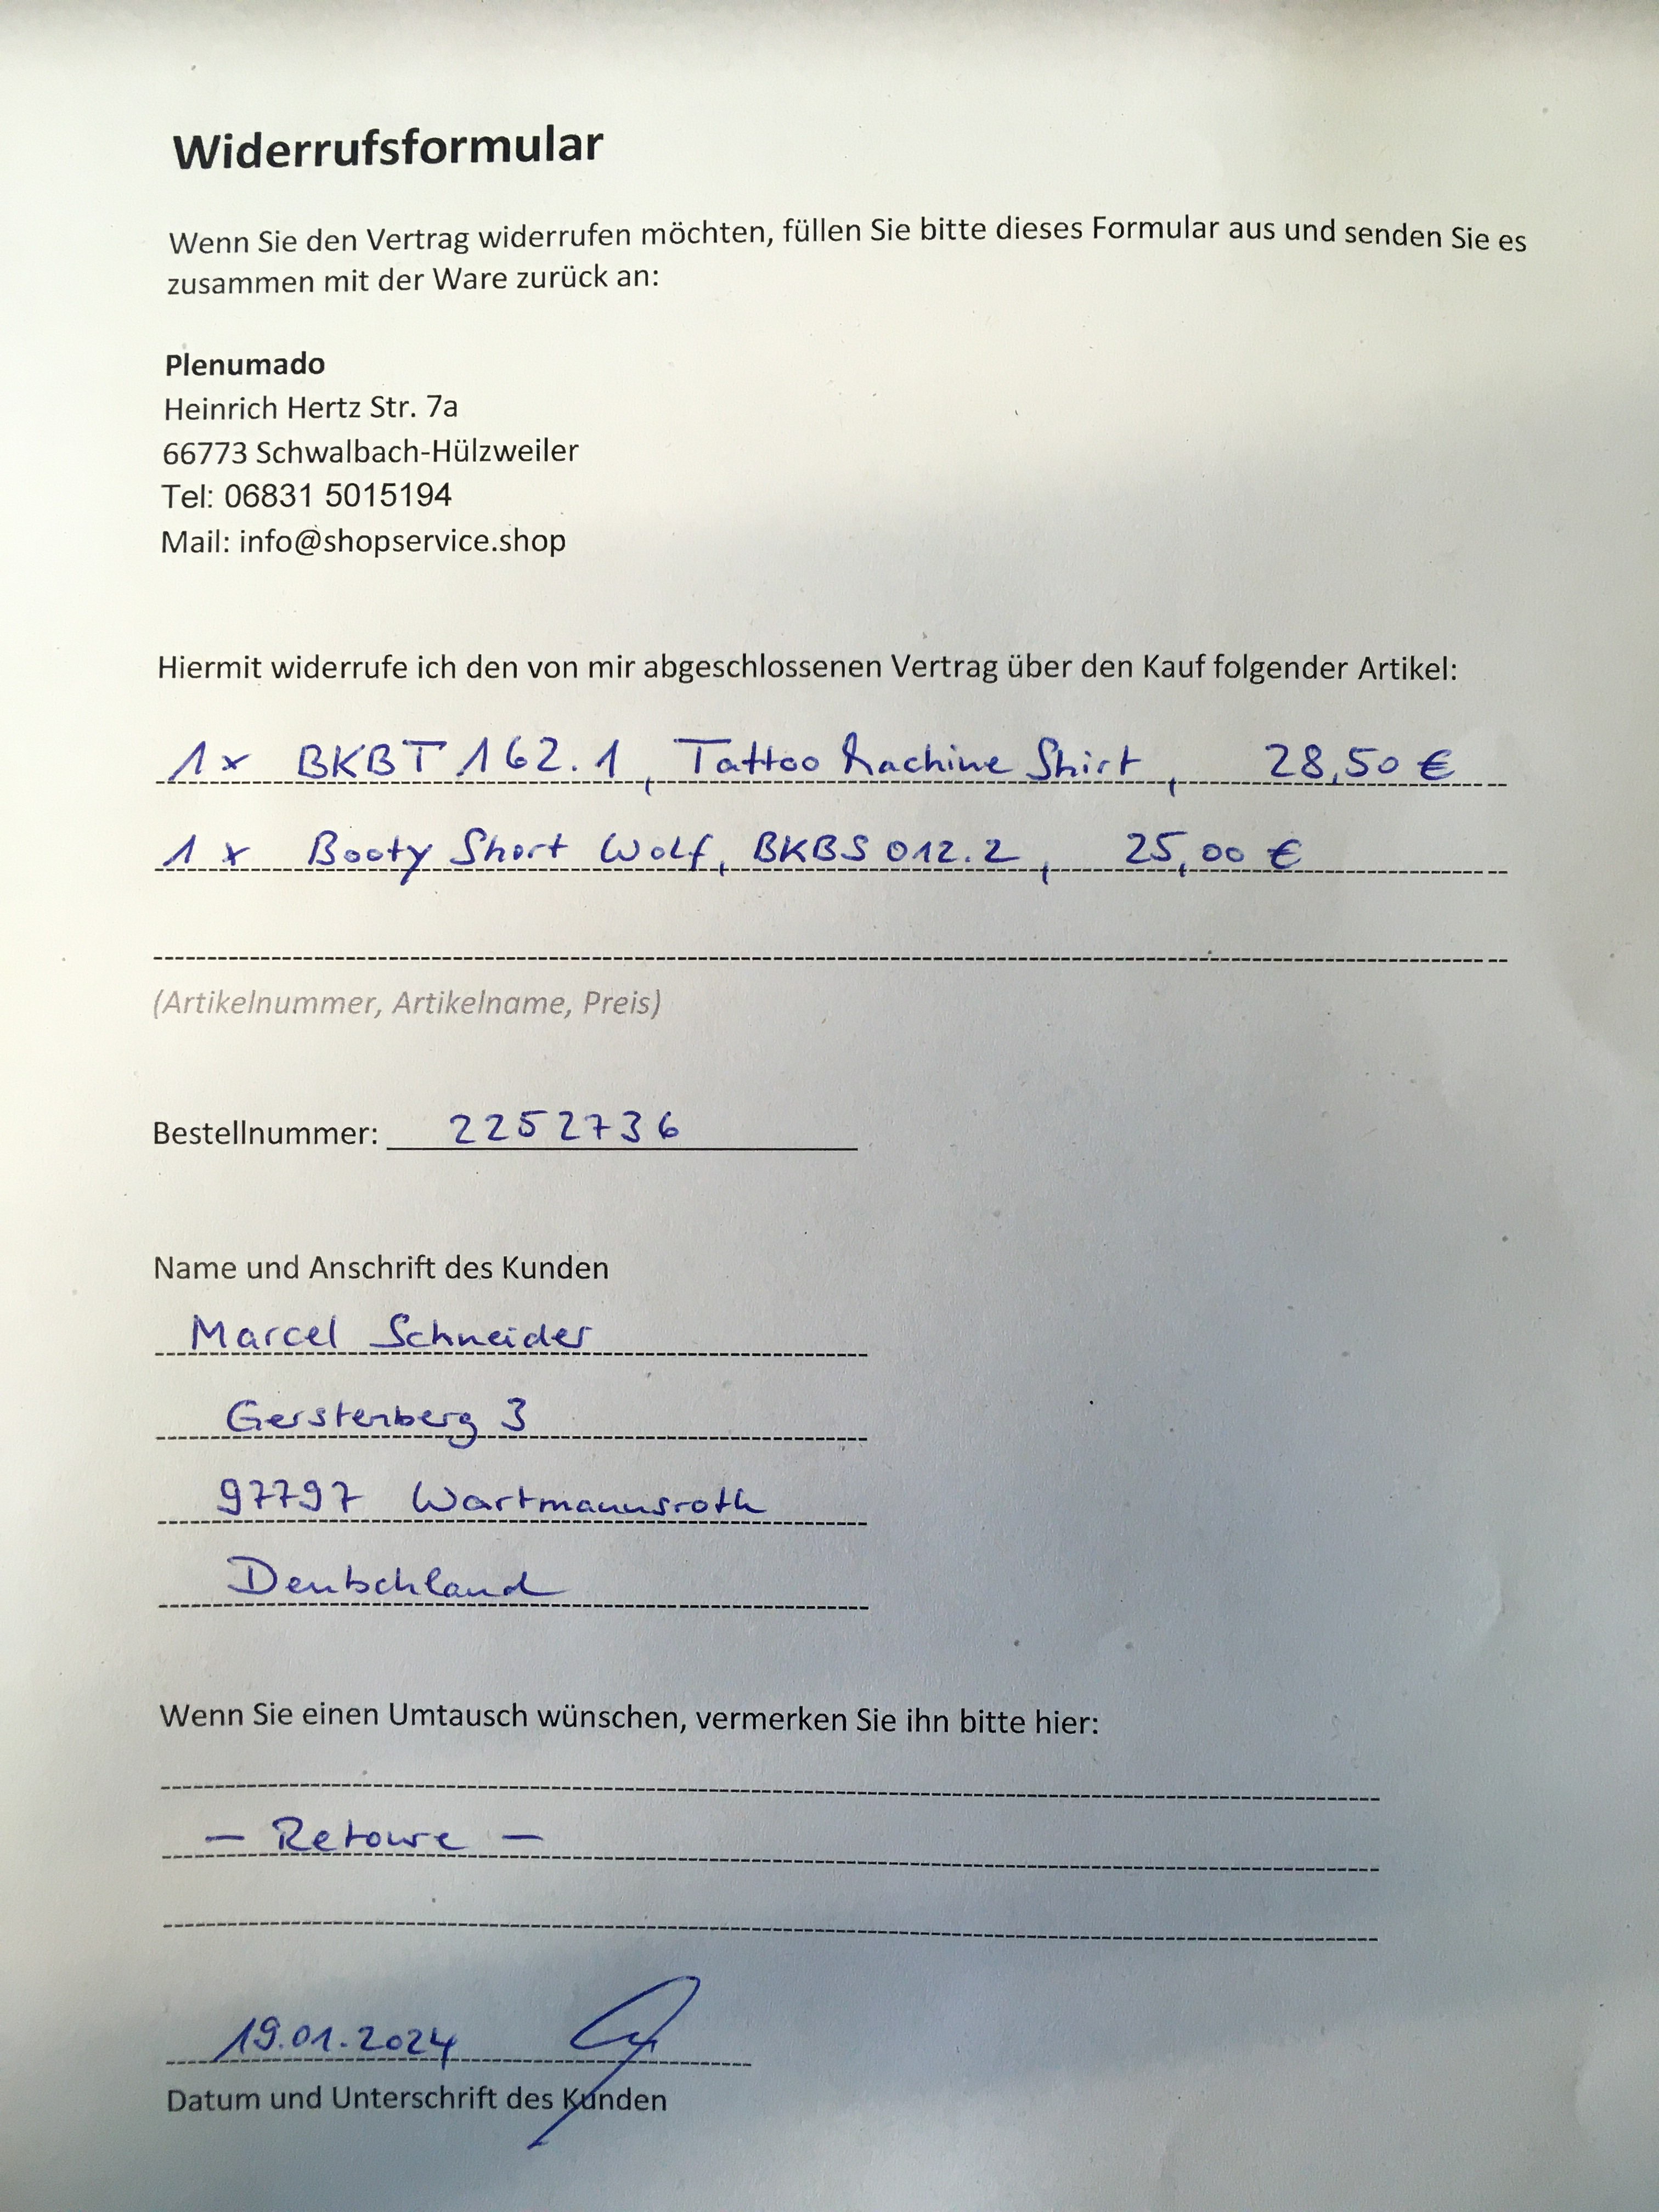 Widerrufsformular
Wenn Sie den Vertrag widerrufen möchten, füllen Sie bitte dieses Formular aus und senden Sie es
zusammen mit der Ware zurück an:
Plenumado
Heinrich Hertz Str. 7a
66773 Schwalbach-Hülzweiler
Tel: 06831 5015194
Mail: info@shopservice.shop
Hiermit widerrufe ich den von mir abgeschlossenen Vertrag über den Kauf folgender Artikel:
1x BKBT 162.1, Tattoo Machine Shirt, 28,50 €
1x Booty Short Wolf, BKBS 012.2, 25,00 €
(Artikelnummer, Artikelname, Preis)
Bestellnummer: 2252736
Name und Anschrift des Kunden
Marcel Schneider
Gerstenberg 3
97797 Wartmannsroth
Deutschland
Wenn Sie einen Umtausch wünschen, vermerken Sie ihn bitte hier:
– Retoure –
19.01.2024
Datum und Unterschrift des Kunden